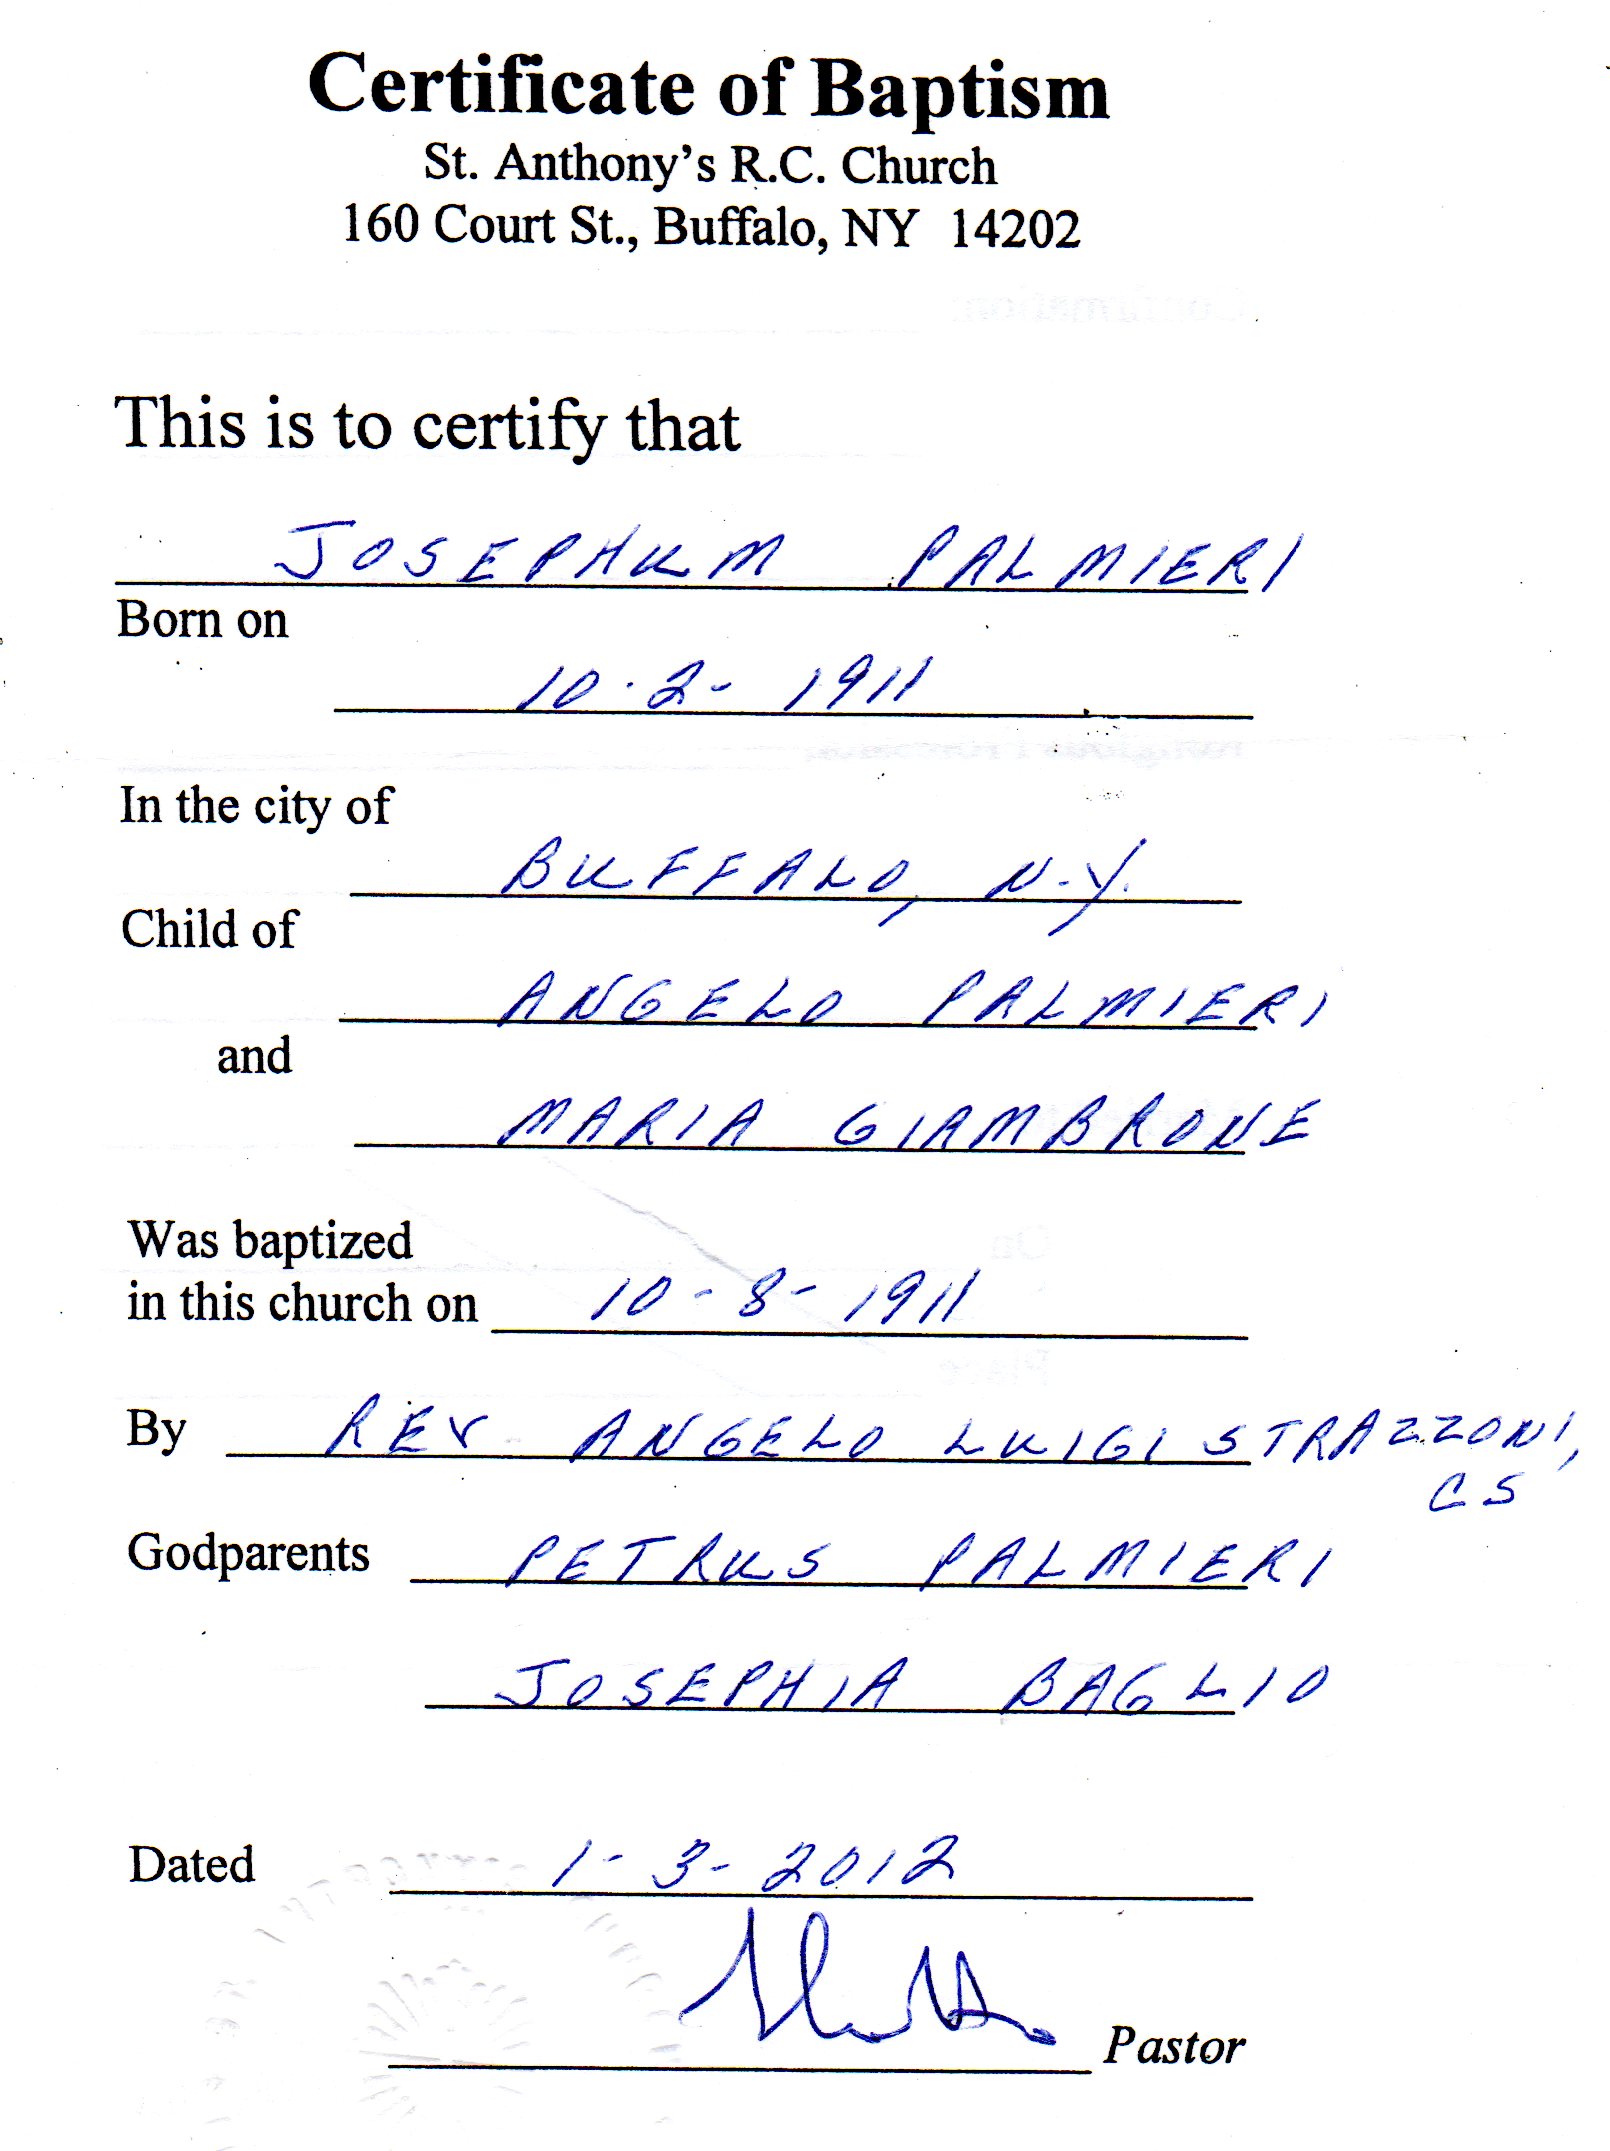 Certificate of Baptism
St. Anthony's R.C. Church
160 Court St., Buffalo, NY 14202
This is to certify that
JOSEPHUM PALMIERI
Born on
10-2-1911
In the city of
BUFFALO, N.Y.
Child of
ANGELO PALMIERI
and
MARIA GIAMBRONE
Was baptized
in this church on 10-8-1911
By REV ANGELO LUIGI STRAZZONI,
CS
Godparents PETRUS PALMIERI
JOSEPHIA BAGLIO
Dated 1-3-2012
Pastor